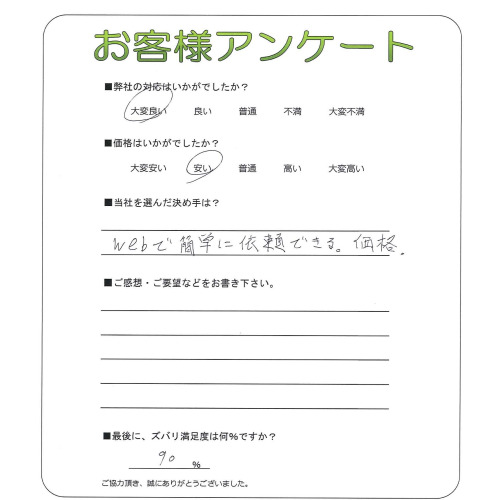 お客様アンケート
■弊社の対応はいかがでしたか？
大変良い 良い 普通 不満 大変不満
■価格はいかがでしたか？
大変安い 安い 普通 高い 大変高い
■当社を選んだ決め手は？
webで簡単に依頼できる。価格.
■ご感想・ご要望などをお書き下さい。
■最後に、ズバリ満足度は何%ですか？
90 %
ご協力頂き、誠にありがとうございました。